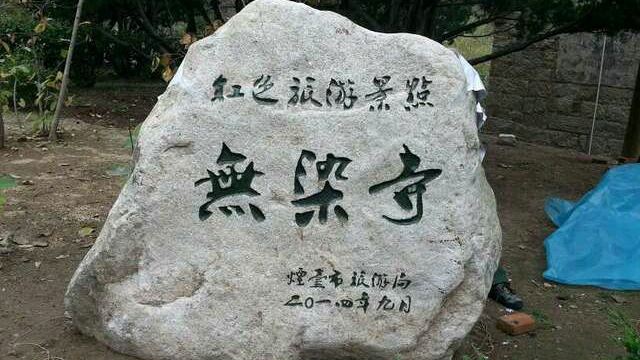 红色旅游景點
無染寺
煙臺市旅游局
二〇一四年九月